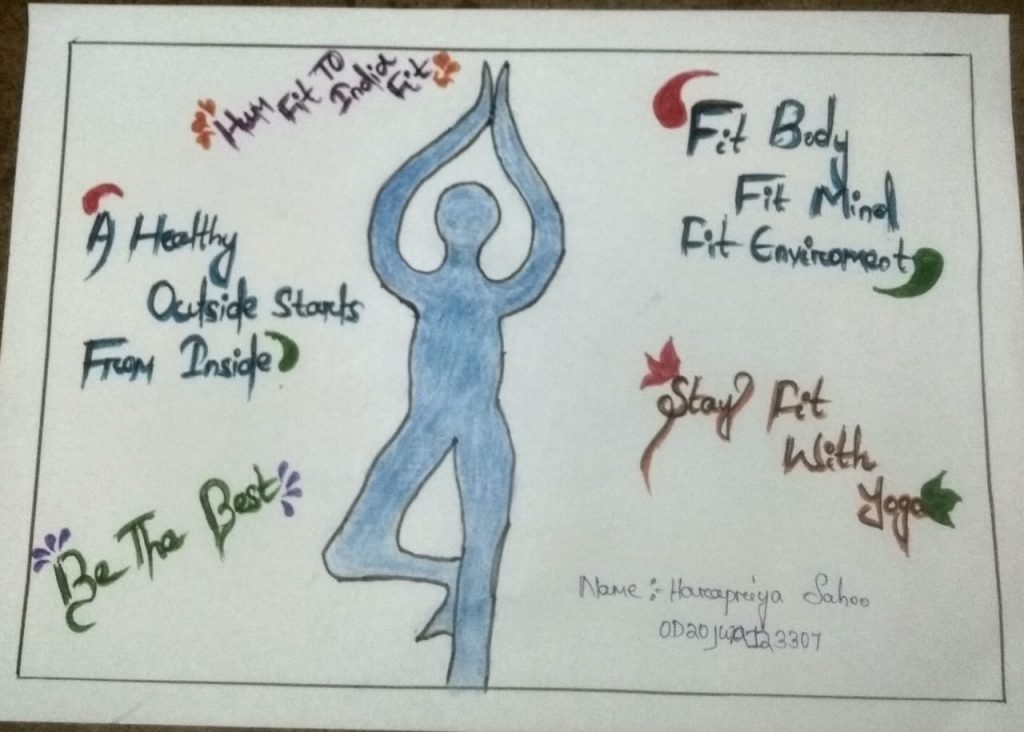 Hum Fit TO India Fit
Fit Body
Fit Mind
Fit Enviroment
A Healthy
Outside Starts
From Inside
Stay Fit
With
Yoga
Be The Best
Name :- Harapriya Sahoo